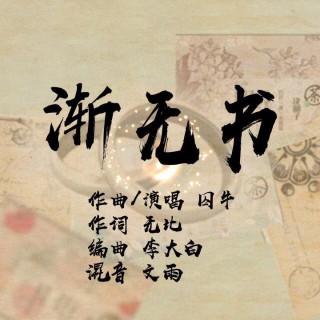 渐无书
作曲/演唱 囚牛
作词 无比
编曲 李大白
混音 文雨